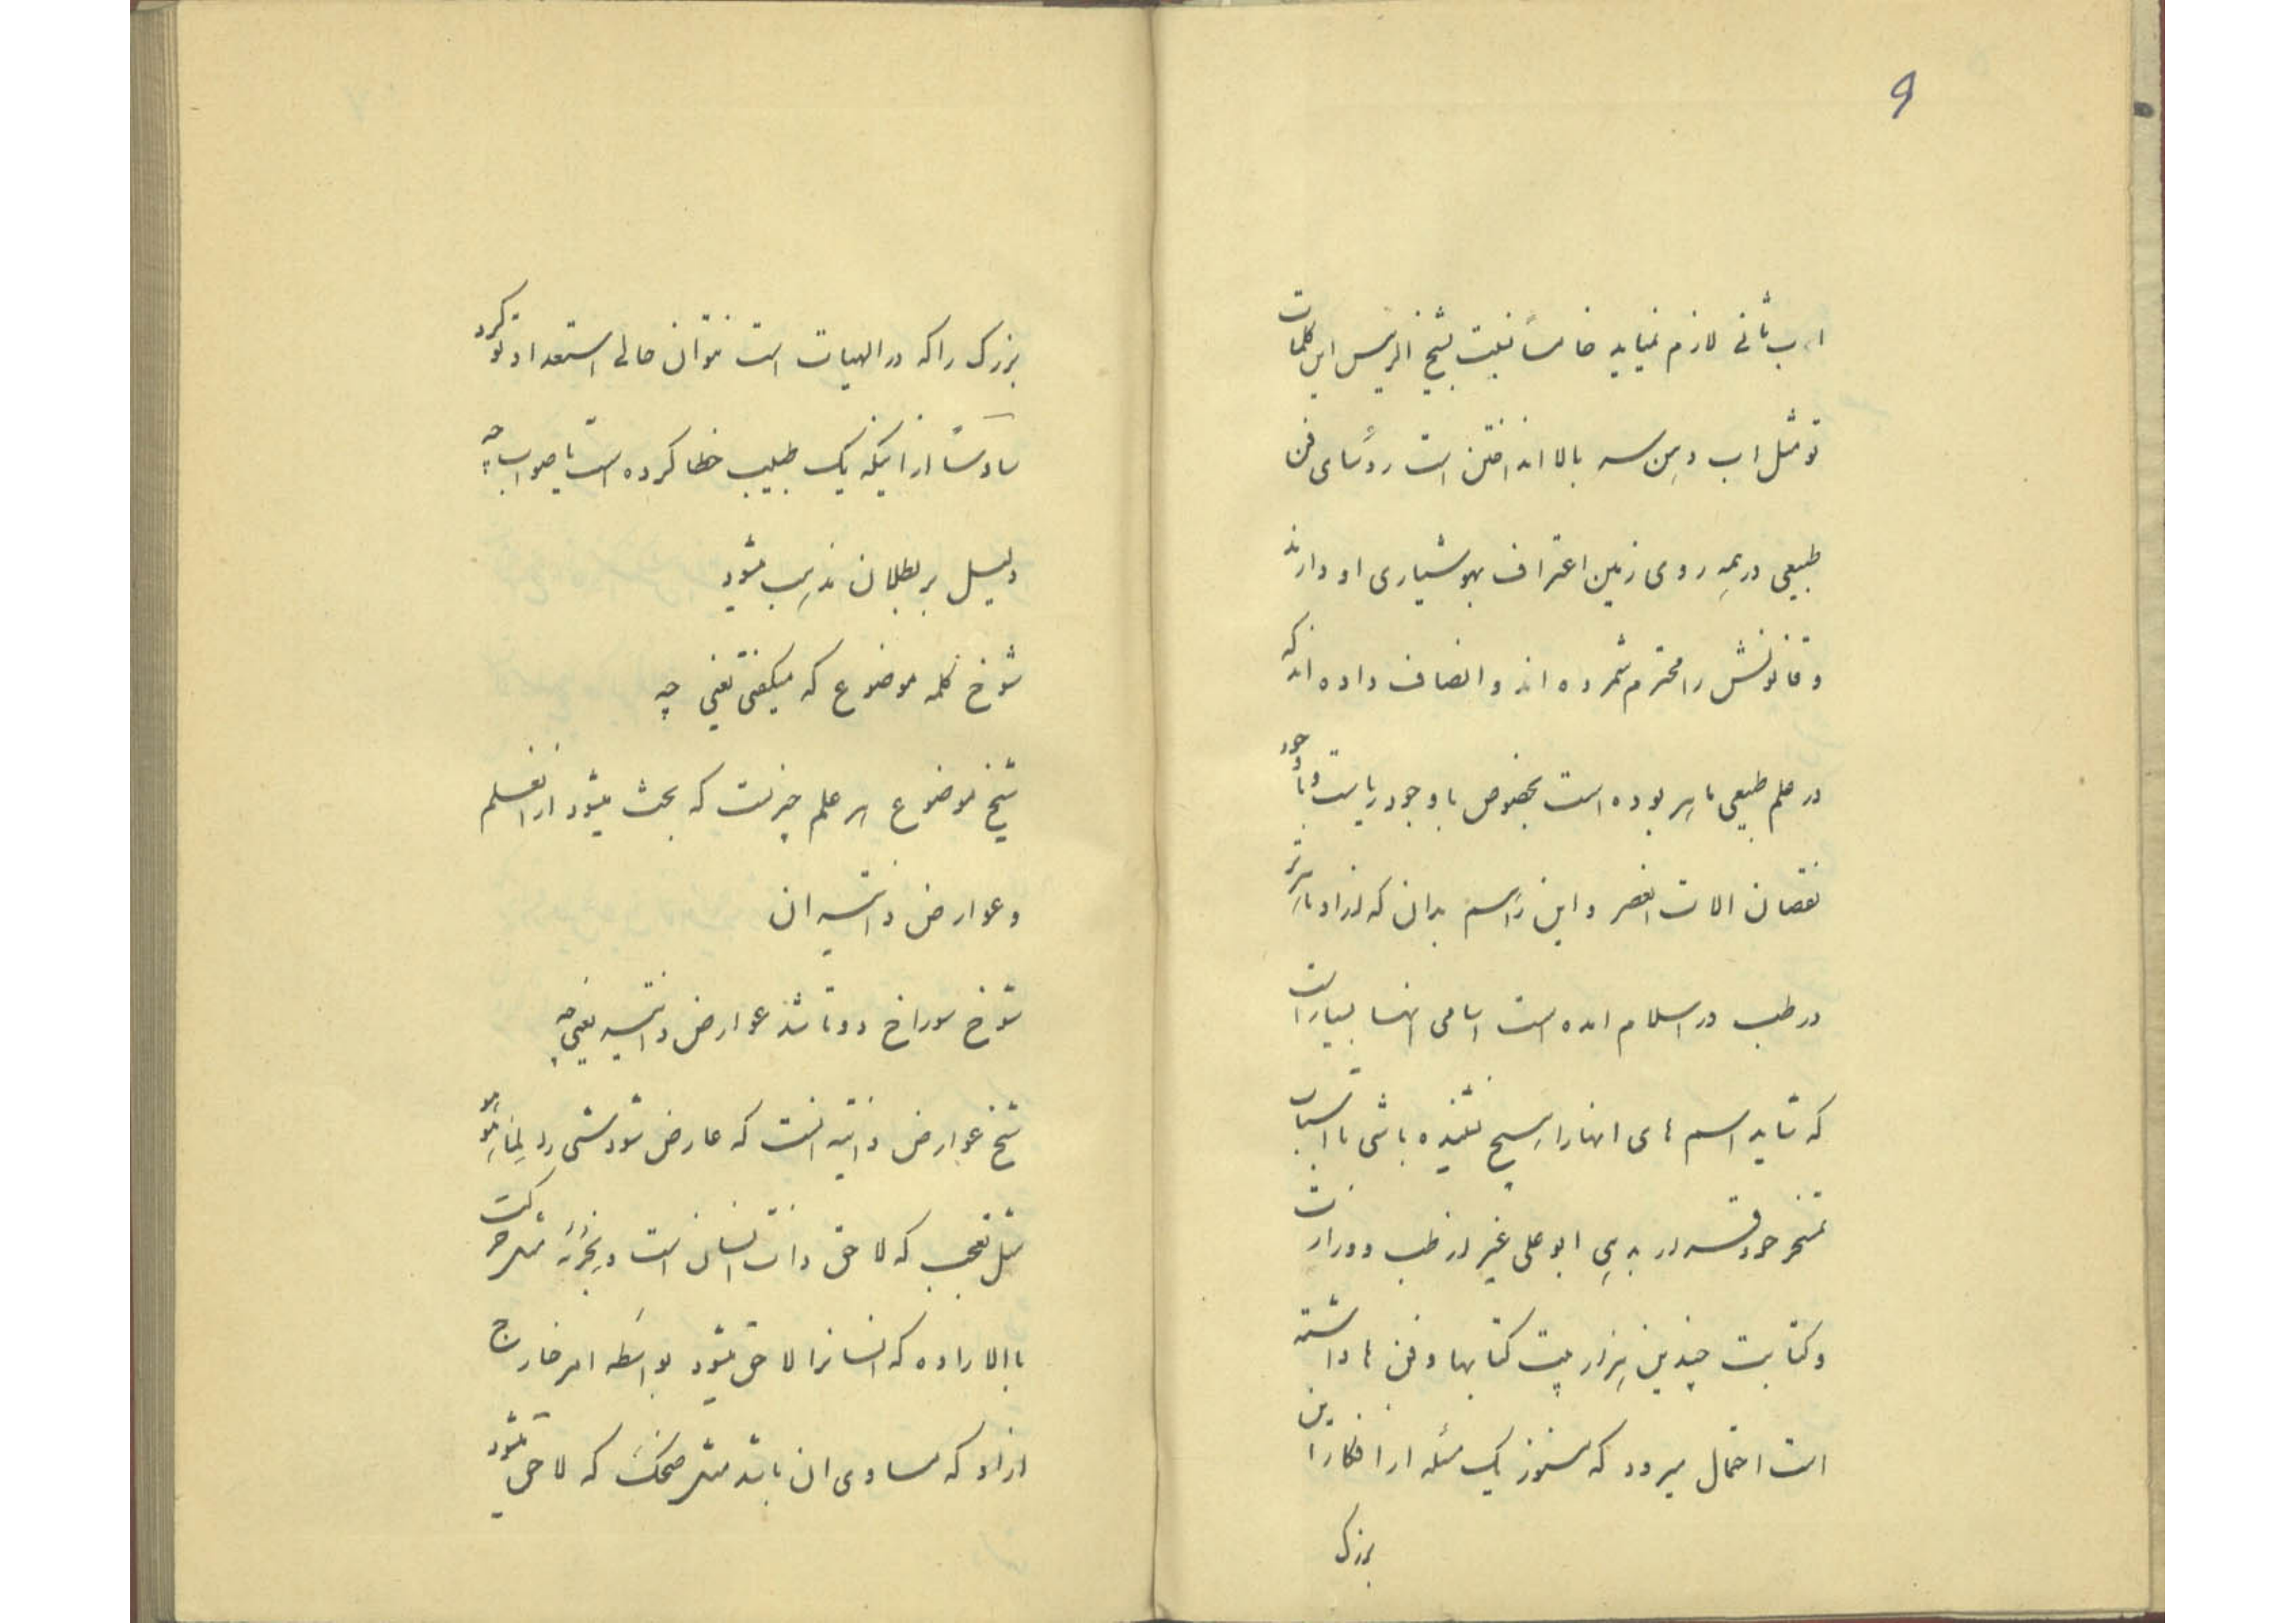 ۶
ا، ب ثانی لازم نمیاید خامساً نسبت بشیخ الرئیس این کلمات
تو مثل اب دهن سر بالا انداختن است رؤسای فن
طبیعی در همه روی زمین اعتراف بهوشیاری او دارند
و قانونش را محترم شمرده اند و انصاف داده اند که
در علم طبیعی ماهر بوده است بخصوص با وجود ریاست و با وجود
نقصان الات انعصر و این را هم بدان که از او ماهرتر
در طب در اسلام امده است اسامی انها بسیار است
که شاید اسم های انها را هیچ نشنیده باشی با اسباب
تمسخر خود در بدیهی ابو علی غیر از طب و وزارت
و کتابت چندین هزار بیت کتابها و فن ها داشته
است احتمال میرود که هنوز یک مسئله از افکار این
بزرک
بزرک را که در الهیات است نتوان حالی استعداد تو کرد
سادساً از اینکه یک طبیب خطا کرده است یا صواب چه
دلیل بر بطلان مذهب میشود
شوخ کلمه موضوع که میکفتی یعنی چه
شیخ موضوع هر علم چیزیست که بحث میشود از انعلم
و عوارض ذاتیه ان
شوخ سوراخ دوتا شد عوارض ذاتیه یعنی چه
شیخ عوارض ذاتیه انست که عارض شود شی را لما هو هو
مثل تعجب که لاحق ذات انسان است و بجزئه مثل حرکت
باالاراده که انسانرا لاحق میشود بواسطه امر خارج
از او که مساوی ان باشد مثل ضحک که لاحق میشود